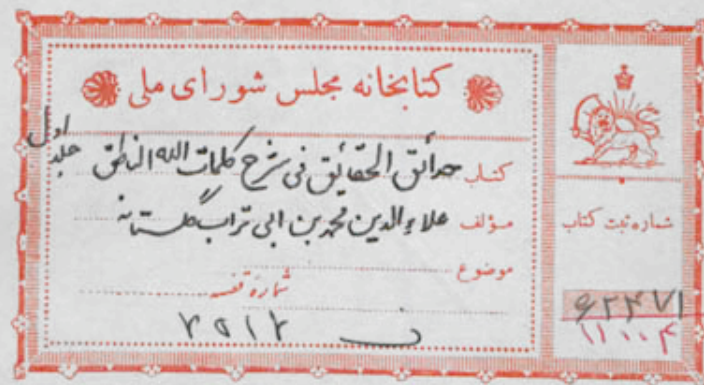 کتابخانه مجلس شورای ملی
کتاب حدائق الحقائق فی شرح کلمات الله الناطق جلد اول
مؤلف علاءالدین محمد بن ابی تراب گلستانه
موضوع
شماره قفسه
شماره ثبت کتاب
۶۲۴۷۱
۱۱۰۰۴